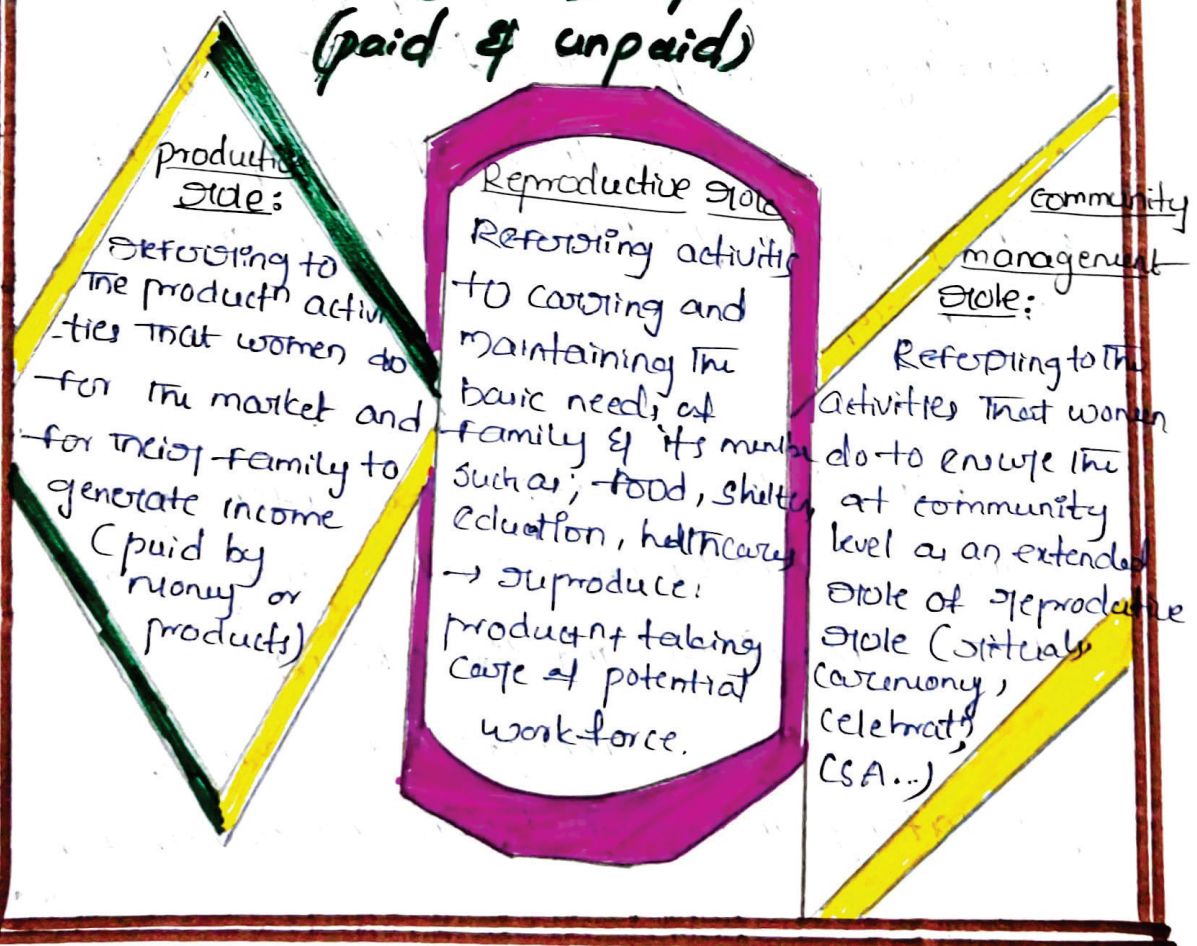 (paid & unpaid)
productive
role:
referring to
The productn activi
-ties That women do
for the market and
for their family to
generate income
(paid by
money or
products)
Reproductive role
Referring activitis
to carring and
maintaining The
basic needs of
family & its membe
such as; food, shelter
eduation, helthcares
→ reproduce:
productn + taking
care of potential
workforce.
community
management
role:
Referring to The
activities That women
do to ensure The
at community
level as an extended
role of reproductive
role (rituals,
caremony,
celebratn,
CSA...)